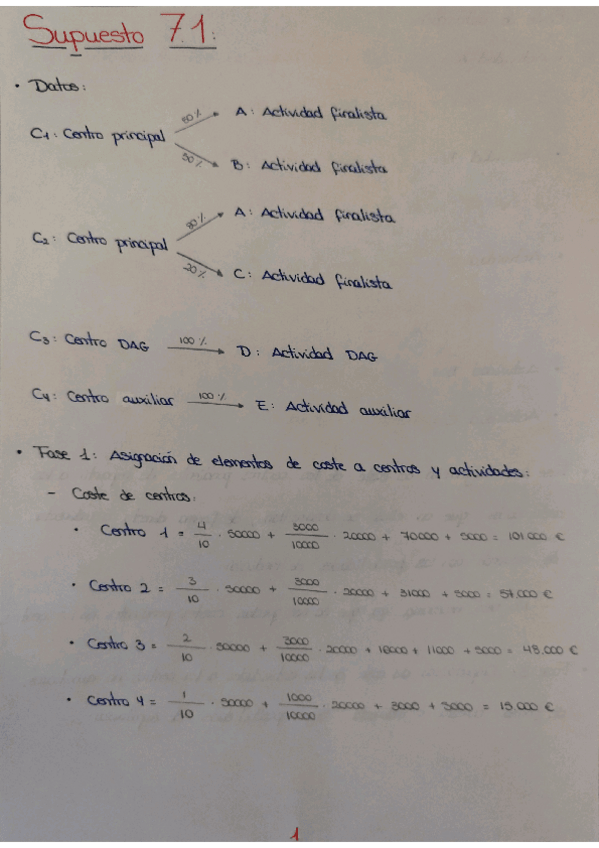 Supuesto 7.1:
• Datos:
50% A: Actividad finalista
C1: Centro principal
50% B: Actividad finalista
80% A: Actividad finalista
C2: Centro principal
20% C: Actividad finalista
C3: Centro DAG 100% D: Actividad DAG
C4: Centro auxiliar 100% E: Actividad auxiliar
• Fase 1: Asignación de elementos de coste a centros y actividades:
- Coste de centros:
• Centro 1 = 4/10 · 50000 + 3000/10000 · 20000 + 70000 + 5000 = 101.000 €
• Centro 2 = 3/10 · 50000 + 3000/10000 · 20000 + 31000 + 5000 = 57.000 €
• Centro 3 = 2/10 · 50000 + 3000/10000 · 20000 + 16000 + 11000 + 5000 = 48.000 €
• Centro 4 = 1/10 · 50000 + 1000/10000 · 20000 + 3000 + 5000 = 15.000 €
1